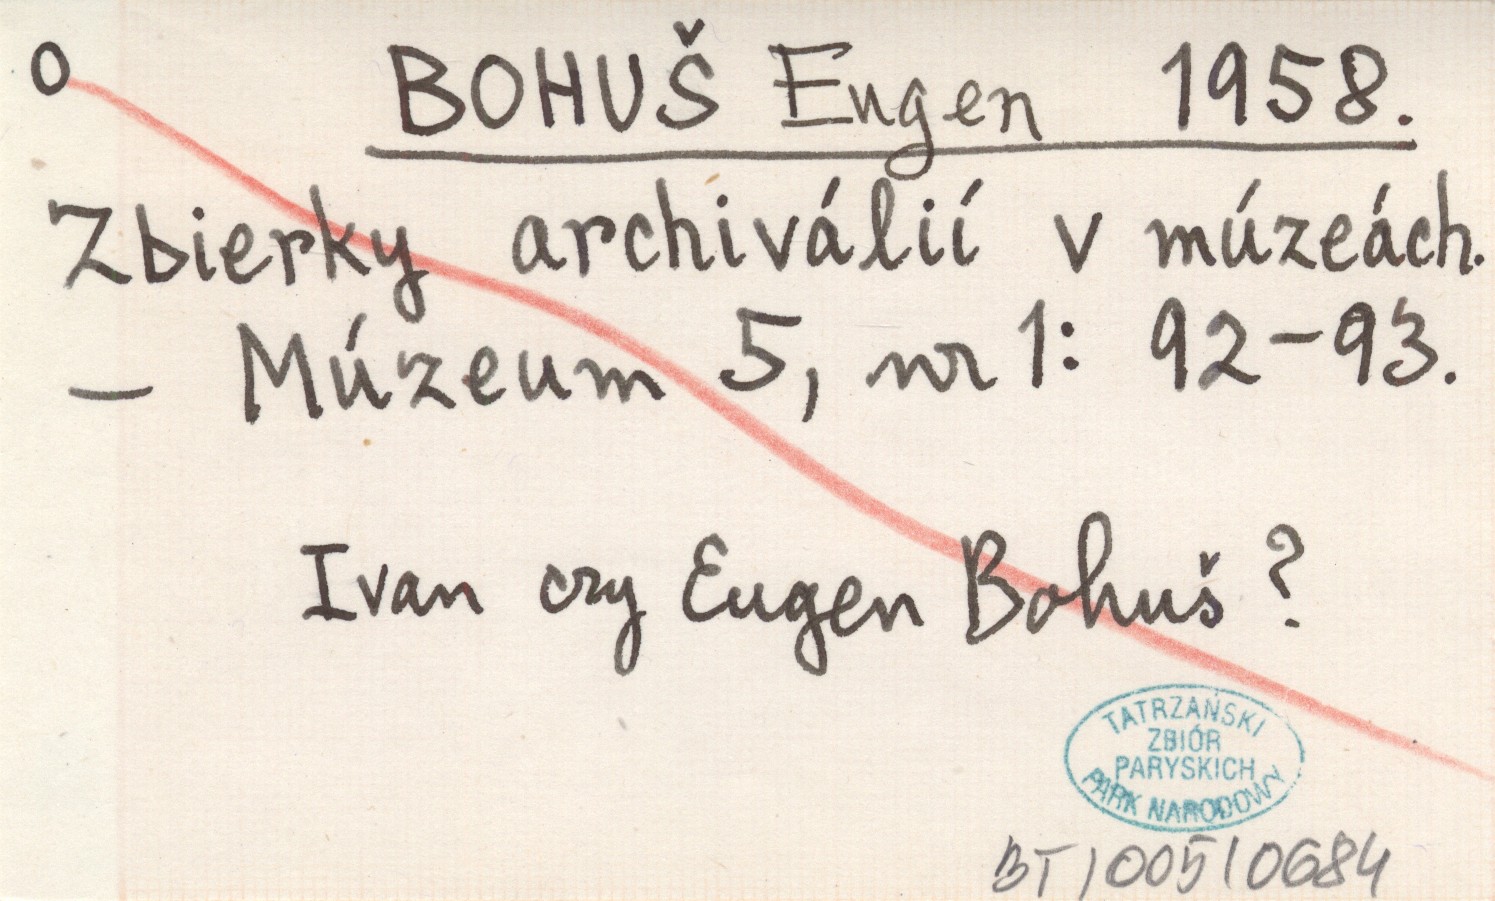 O BOHUŠ Eugen 1958.
Zbierky archiválií v múzeách.
— Múzeum 5, nr 1: 92-93.
Ivan czy Eugen Bohuš?
TATRZAŃSKI
ZBIÓR
PARYSKICH
PARK NARODOWY
BT/005/0684